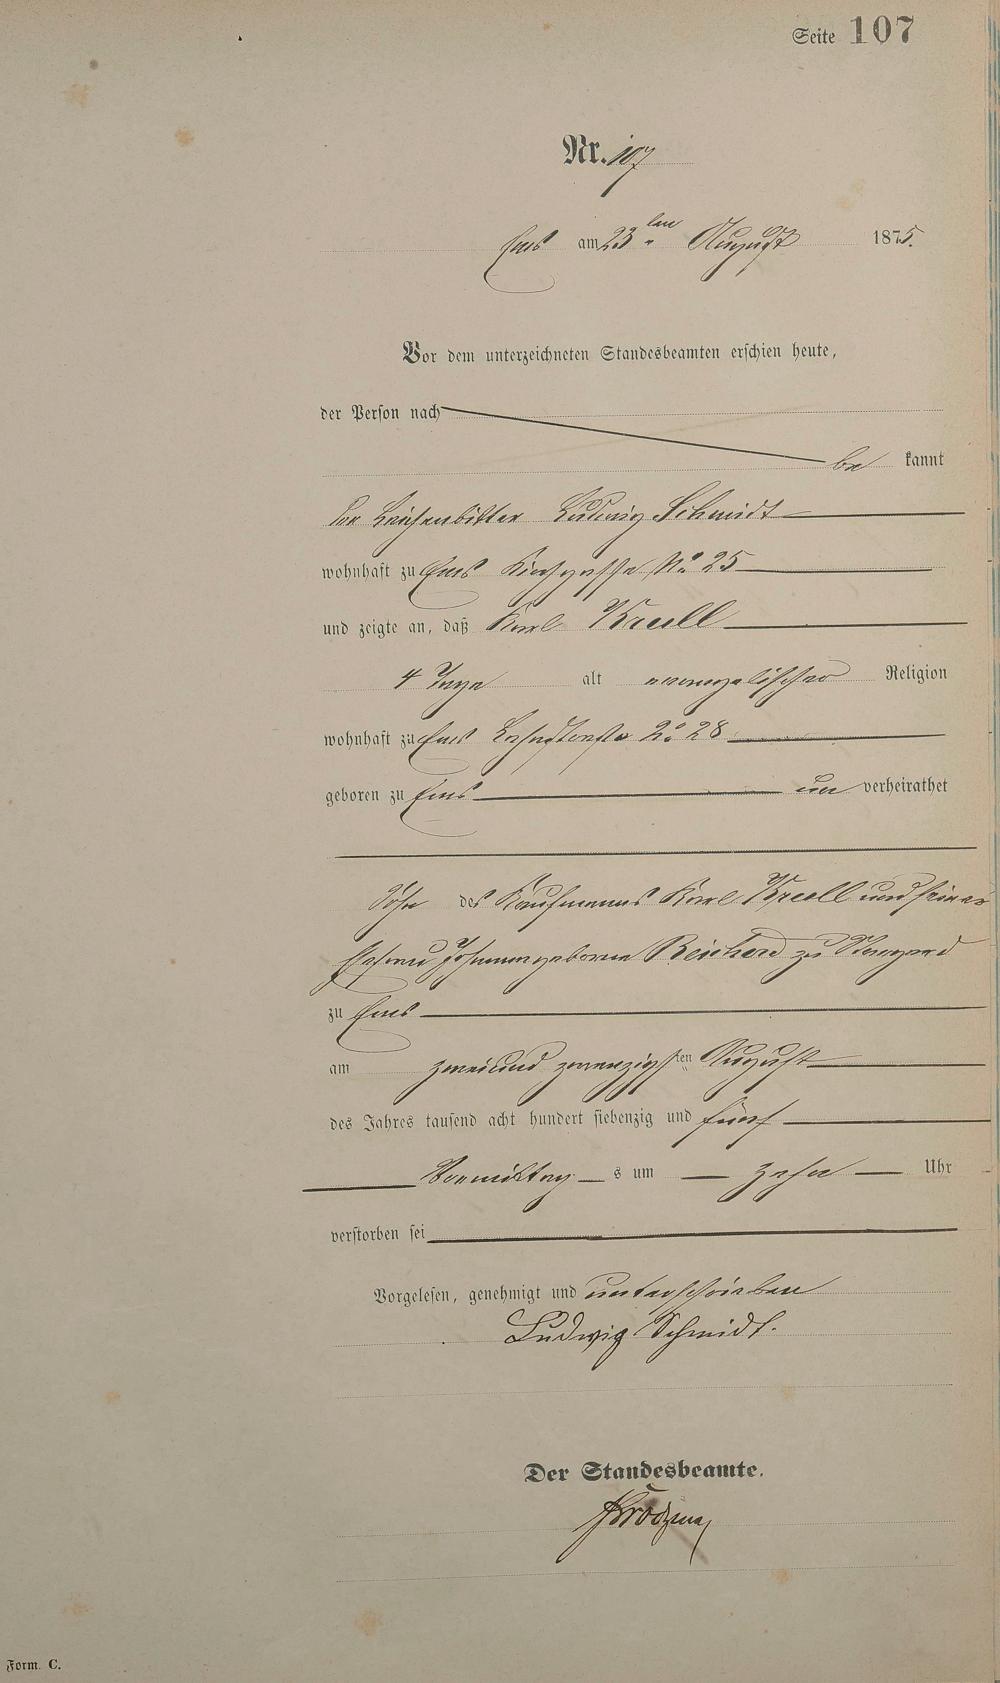 Seite 107
Nr. 107
Ems am 23ten August 1875.
Vor dem unterzeichneten Standesbeamten erschien heute,
der Person nach
be kannt
der Leichenbitter Ludwig Schmidt
wohnhaft zu Ems Kirchgasse No 25
und zeigte an, daß Karl Krell
4 Tage alt evangelischer Religion
wohnhaft zu Ems No 28
geboren zu Ems un verheirathet
Sohn des Kaufmanns Karl Krell und seiner
Ehefrau Johanna geborene Reinhard zu
zu Ems
am zweiund zwanzigsten August
des Jahres tausend acht hundert siebenzig und fünf
Vormittag s um zehn Uhr
verstorben sei
Vorgelesen, genehmigt und unterschrieben
Ludwig Schmidt.
Der Standesbeamte.
Form. C.